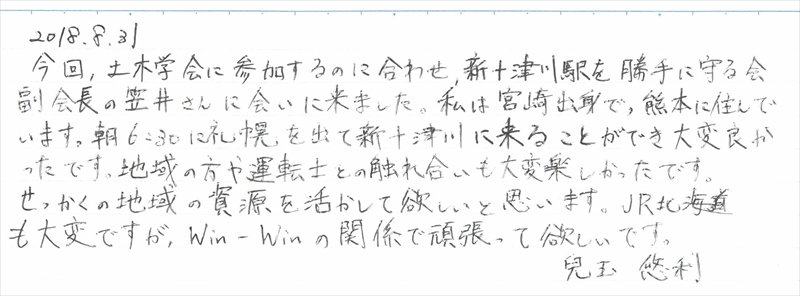 2018.8.31
今回,土木学会に参加するのに合わせ,新十津川駅を勝手に守る会
副会長の笠井さんに会いに来ました。私は宮崎出身で,熊本に住んで
います。朝6:30に札幌を出て新十津川に来ることができ大変良か
ったです。地域の方や運転士との触れ合いも大変楽しかったです。
せっかくの地域の資源を活かして欲しいと思います。JR北海道
も大変ですが,Win-Winの関係で頑張って欲しいです。
兒玉 悠利